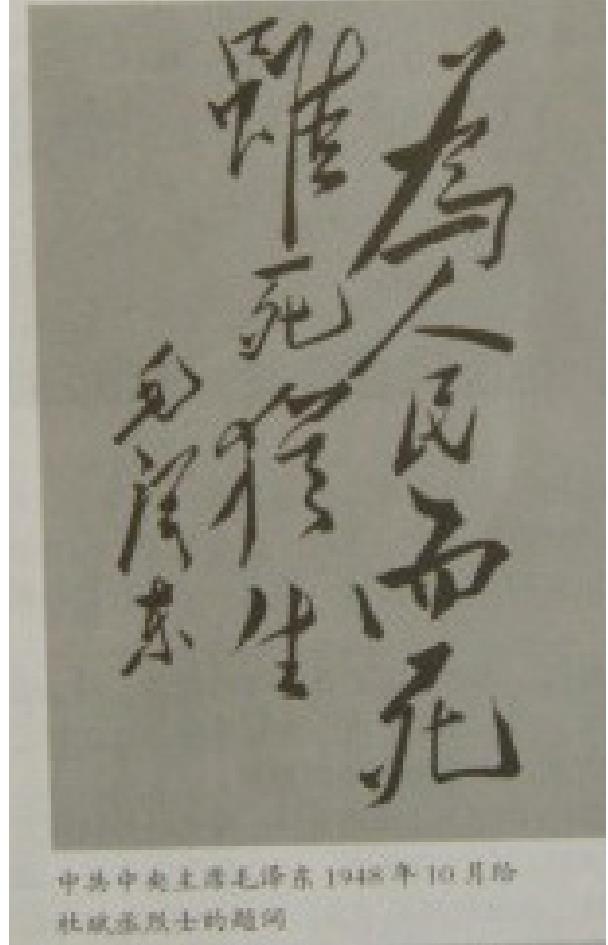 為人民而死
雖死猶生
毛澤東
中共中央主席毛泽东1948年10月给
杜斌丞烈士的题词